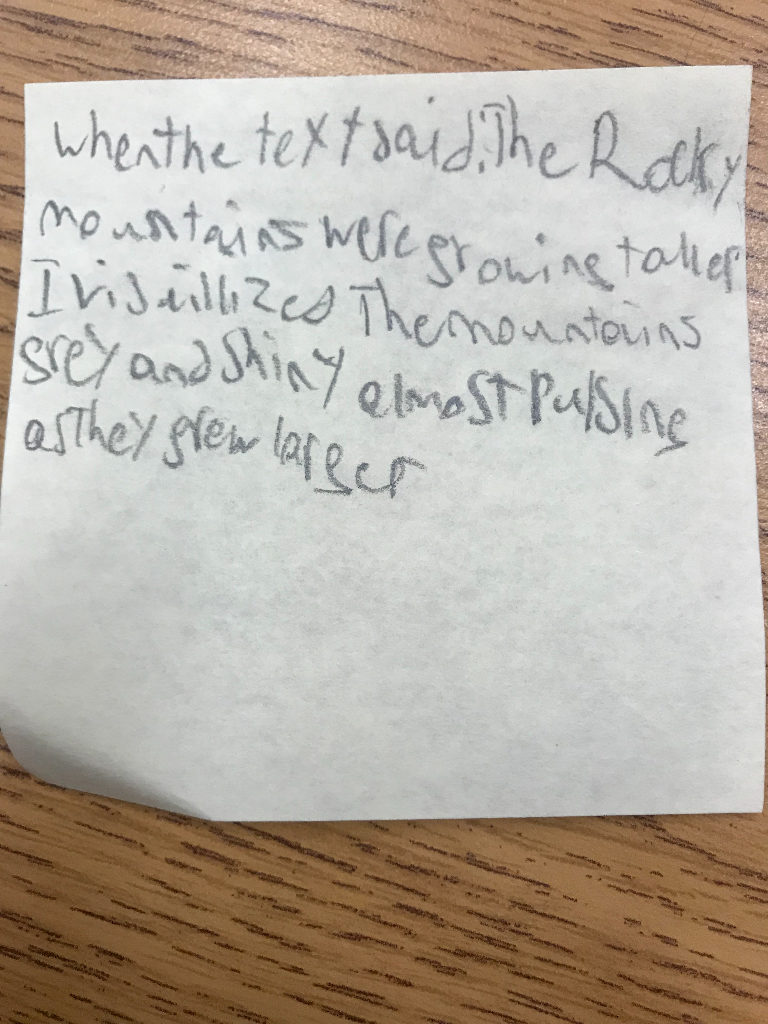 when the text said: The Rocky
mountains were growing taller
I visuillized The mountains
grey and shiny almost pulsing
as They grew larger